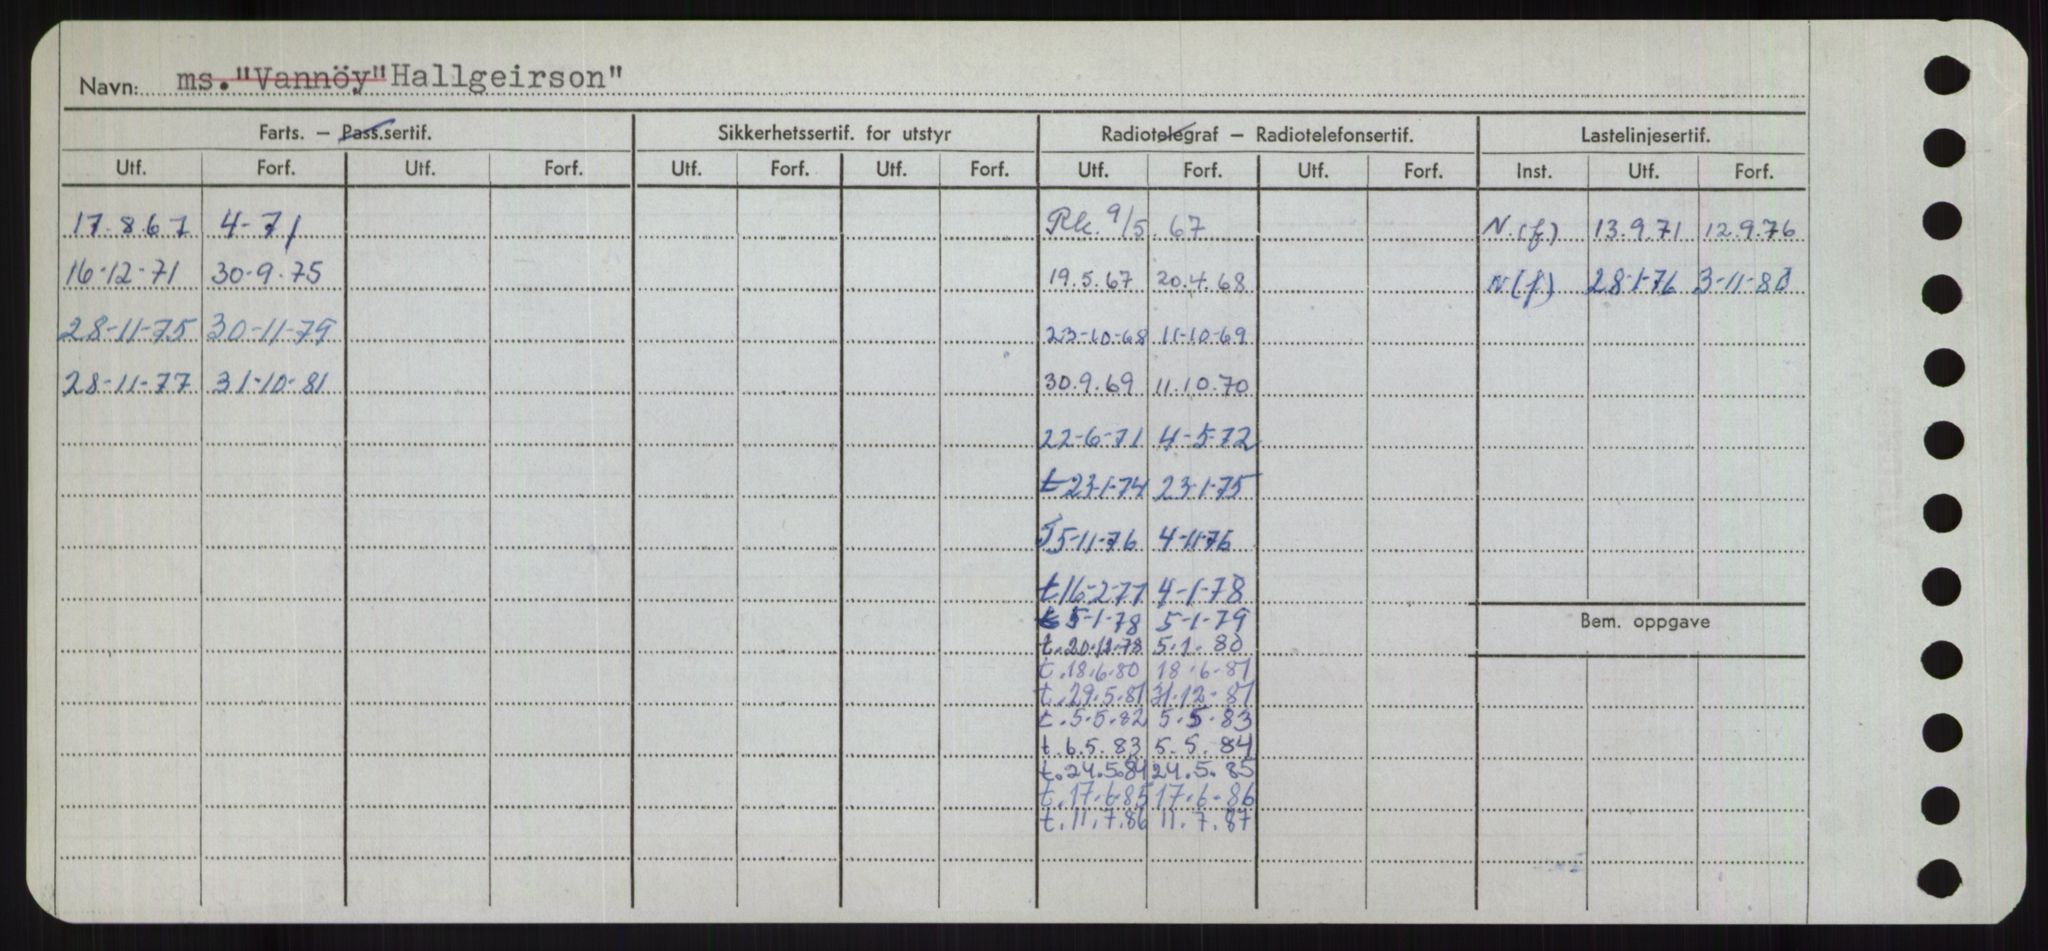 Navn: ms. "Vannöy" Hallgeirson"
Farts. — Pass.sertif. Sikkerhetssertif. for utstyr Radiotelegraf — Radiotelefonsertif. Lastelinjesertif.
Utf. Forf. Utf. Forf. Utf. Forf. Utf. Forf. Utf. Forf. Utf. Forf. Inst. Utf. Forf.
17.8.67 4-71 Rk. 9/5.67 N.(f) 13.9.71 12.9.76
16-12-71 30-9-75 19.5.67 20.4.68 N(f) 28-1-76 3-11-80
28-11-75 30-11-79 23-10-68 11-10-69
28-11-77 31-10-81 30.9.69 11.10.70
22-6-71 4-5-72
t 23-1-74 23-1-75
5-11-76 4-11-76
t 16-2-77 4-1-78
t 5-1-78 5-1-79
Bem. oppgave
t. 20.12.78 5.1.80
t. 18.6.80 18.6.81
t. 29.5.81 31.12.81
t. 5.5.82 5.5.83
t. 6.5.83 5.5.84
t. 24.5.84 24.5.85
t. 17.6.85 17.6.86
t. 11.7.86 11.7.87